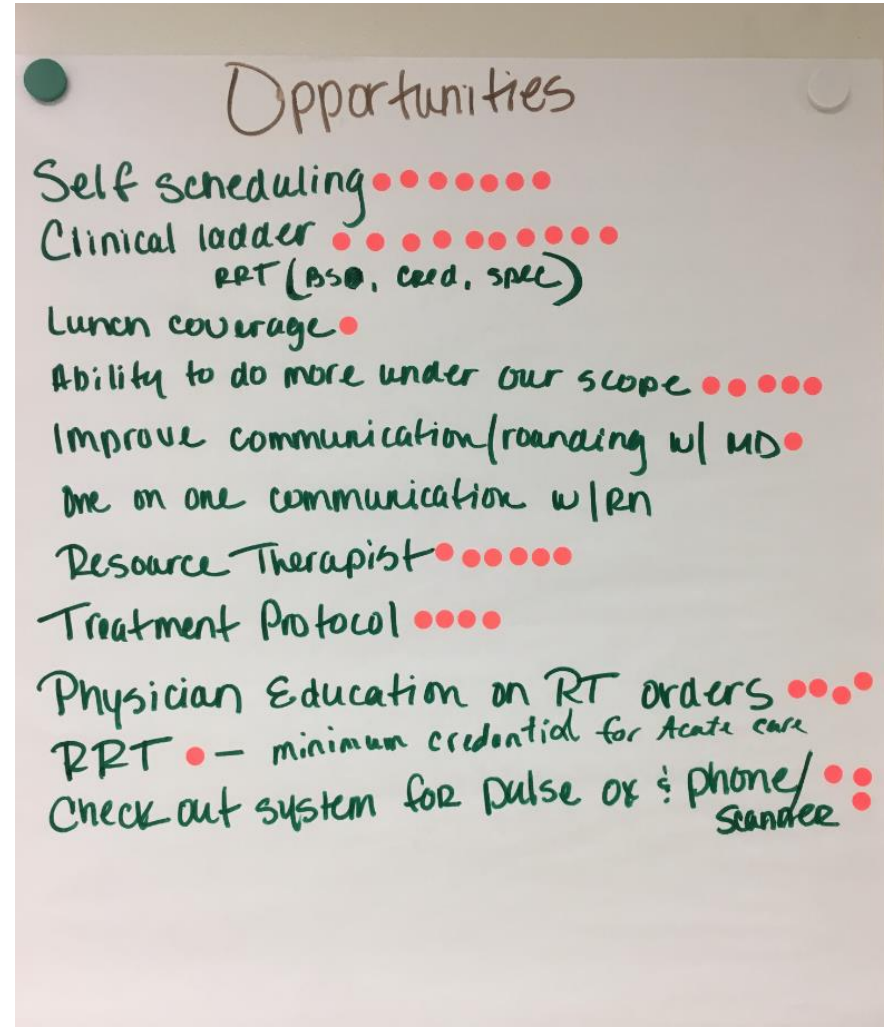 Opportunities
Self scheduling
Clinical ladder
RRT (BS, cred, spec)
Lunch coverage
Ability to do more under our scope
Improve communication/rounding w/ MD
One on one communication w/RN
Resource Therapist
Treatment Protocol
Physician Education on RT orders
RRT - minimum credential for Acute care
Check out system for pulse ox & phone/
scanner